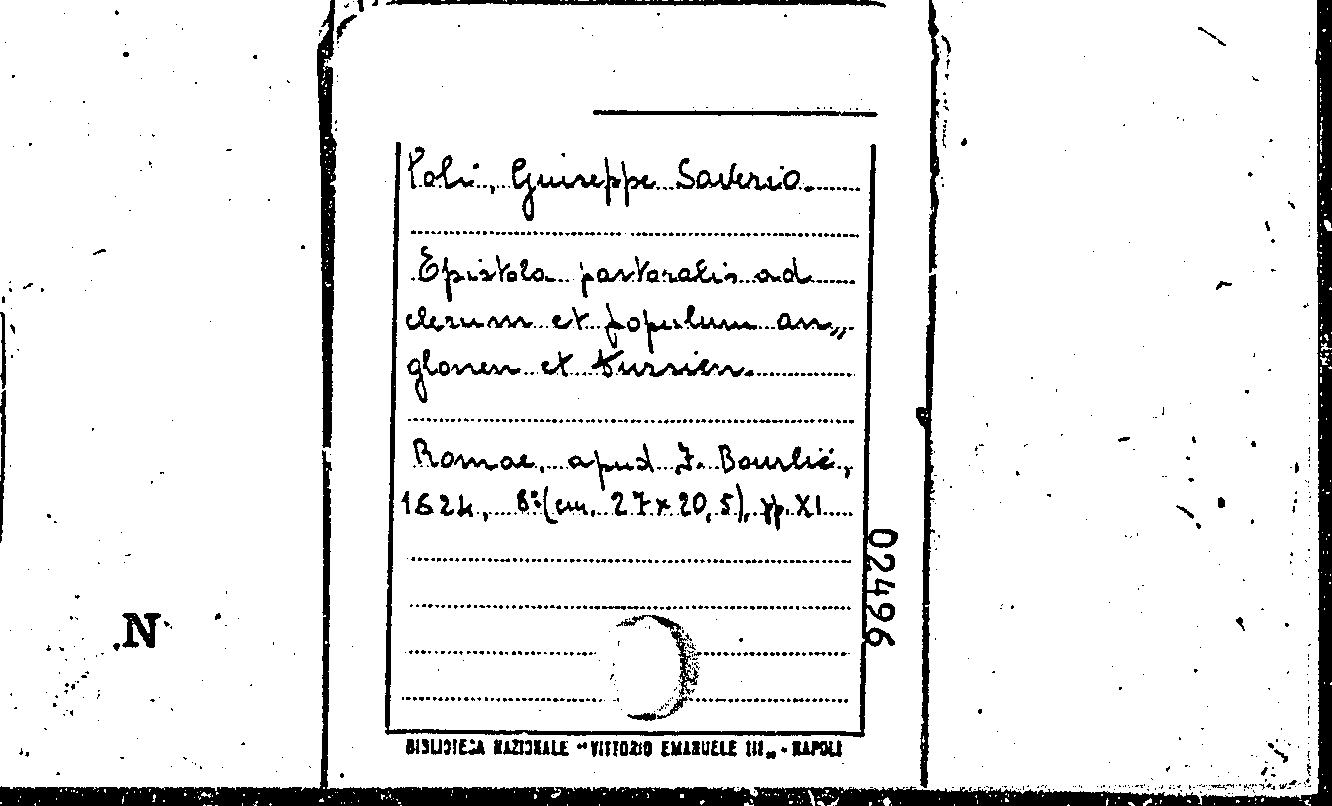 Poli, Giuseppe Saverio.
Epistola pastoralis ad
clerum et populum an„
glonen et tursien.
Romae, apud F. Bourlié,
1824, 8º (cm. 27 x 20,5), pp. XI
02496
N
BIBLIOTECA NAZIONALE "VITTORIO EMANUELE III„ - NAPOLI